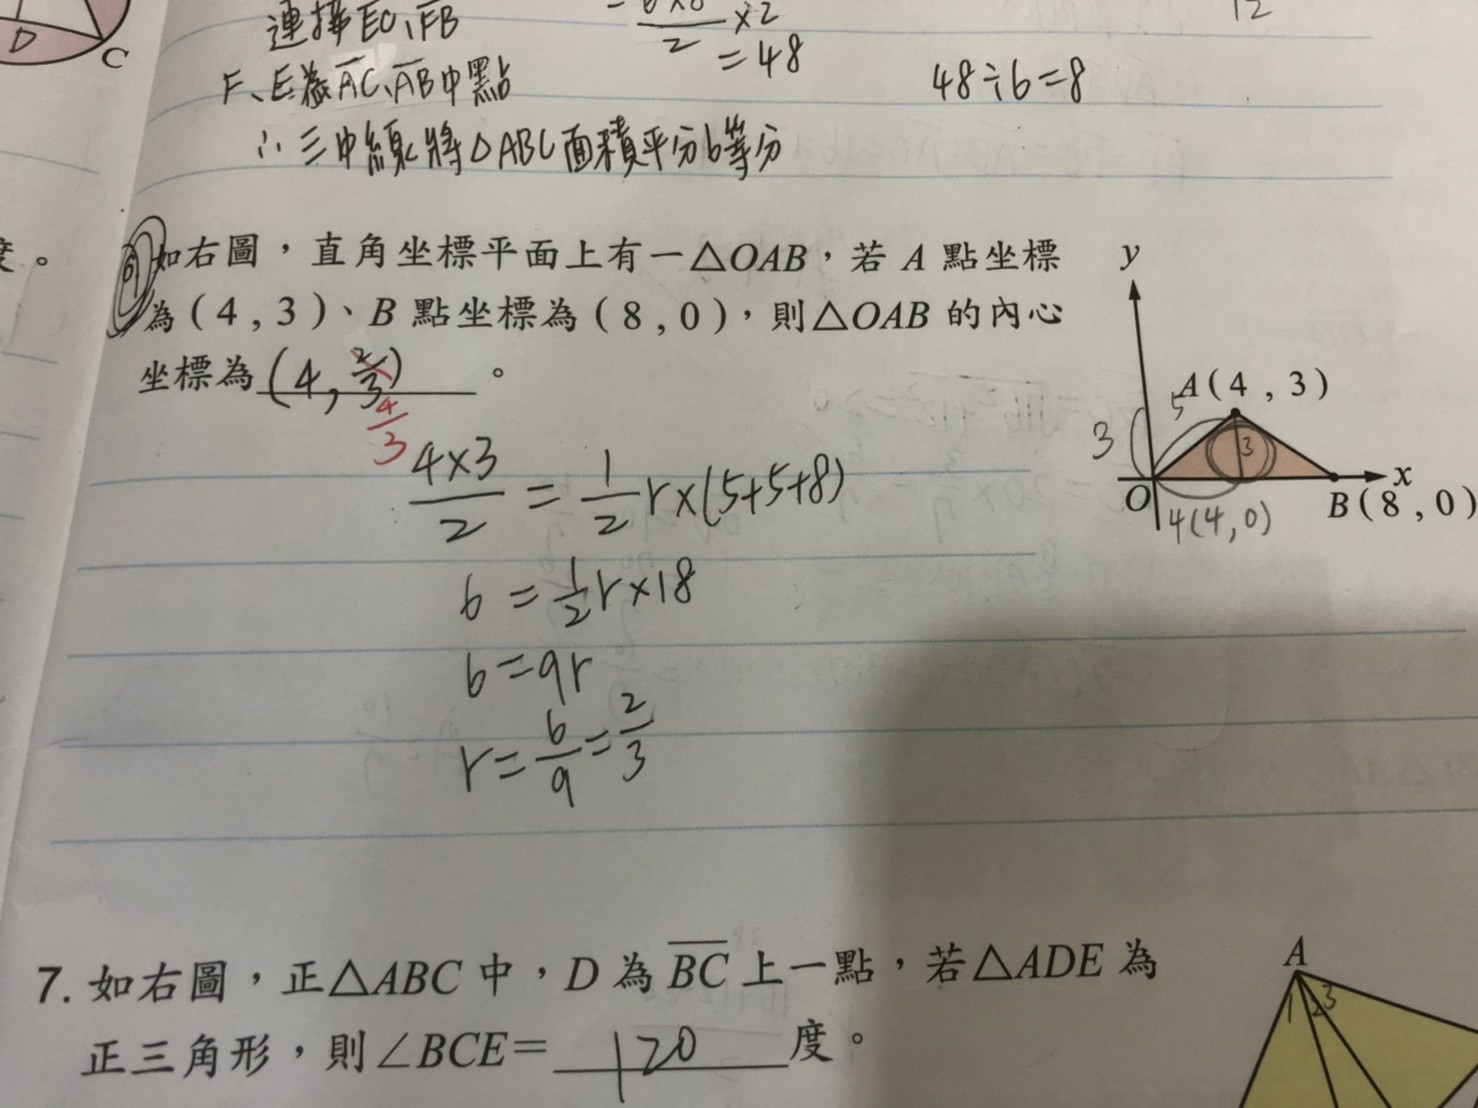 D
C
連接EC、FB
=6×8/2×2
=48
12
F、E為AC、AB中點
48÷6=8
∴三中線將△ABC面積平分6等分
度。
6 如右圖，直角坐標平面上有一△OAB，若 A 點坐標
為(4,3)、B 點坐標為(8,0)，則△OAB 的內心
坐標為(4,2/3)。
4/3
y
A(4,3)
5
3
3
O
x
B(8,0)
4(4,0)
4×3/2=1/2r×(5+5+8)
6=1/2r×18
6=9r
r=6/9=2/3
7. 如右圖，正△ABC 中，D 為BC上一點，若△ADE 為
正三角形，則∠BCE=120度。
A
1 2 3